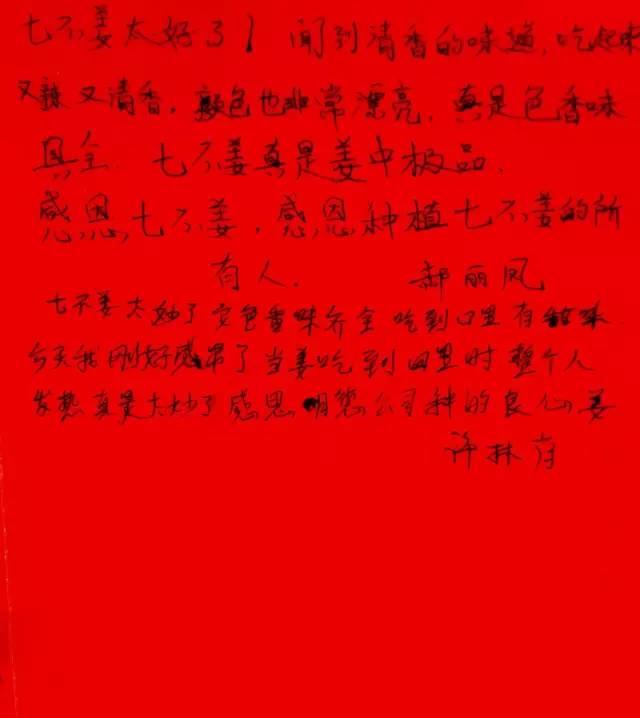 七不姜太好了！闻到清香的味道，吃起来
又辣又清香。颜色也非常漂亮，真是色香味
具全．七不姜真是姜中极品．
感恩七不姜，感恩种植七不姜的所
有人．郝丽凤
七不姜太妙了 色香味齐全 吃到口里有
今天我刚好感冒了当姜吃到口里时整个人
发热真是太妙了感恩 公司种的良心姜
许林